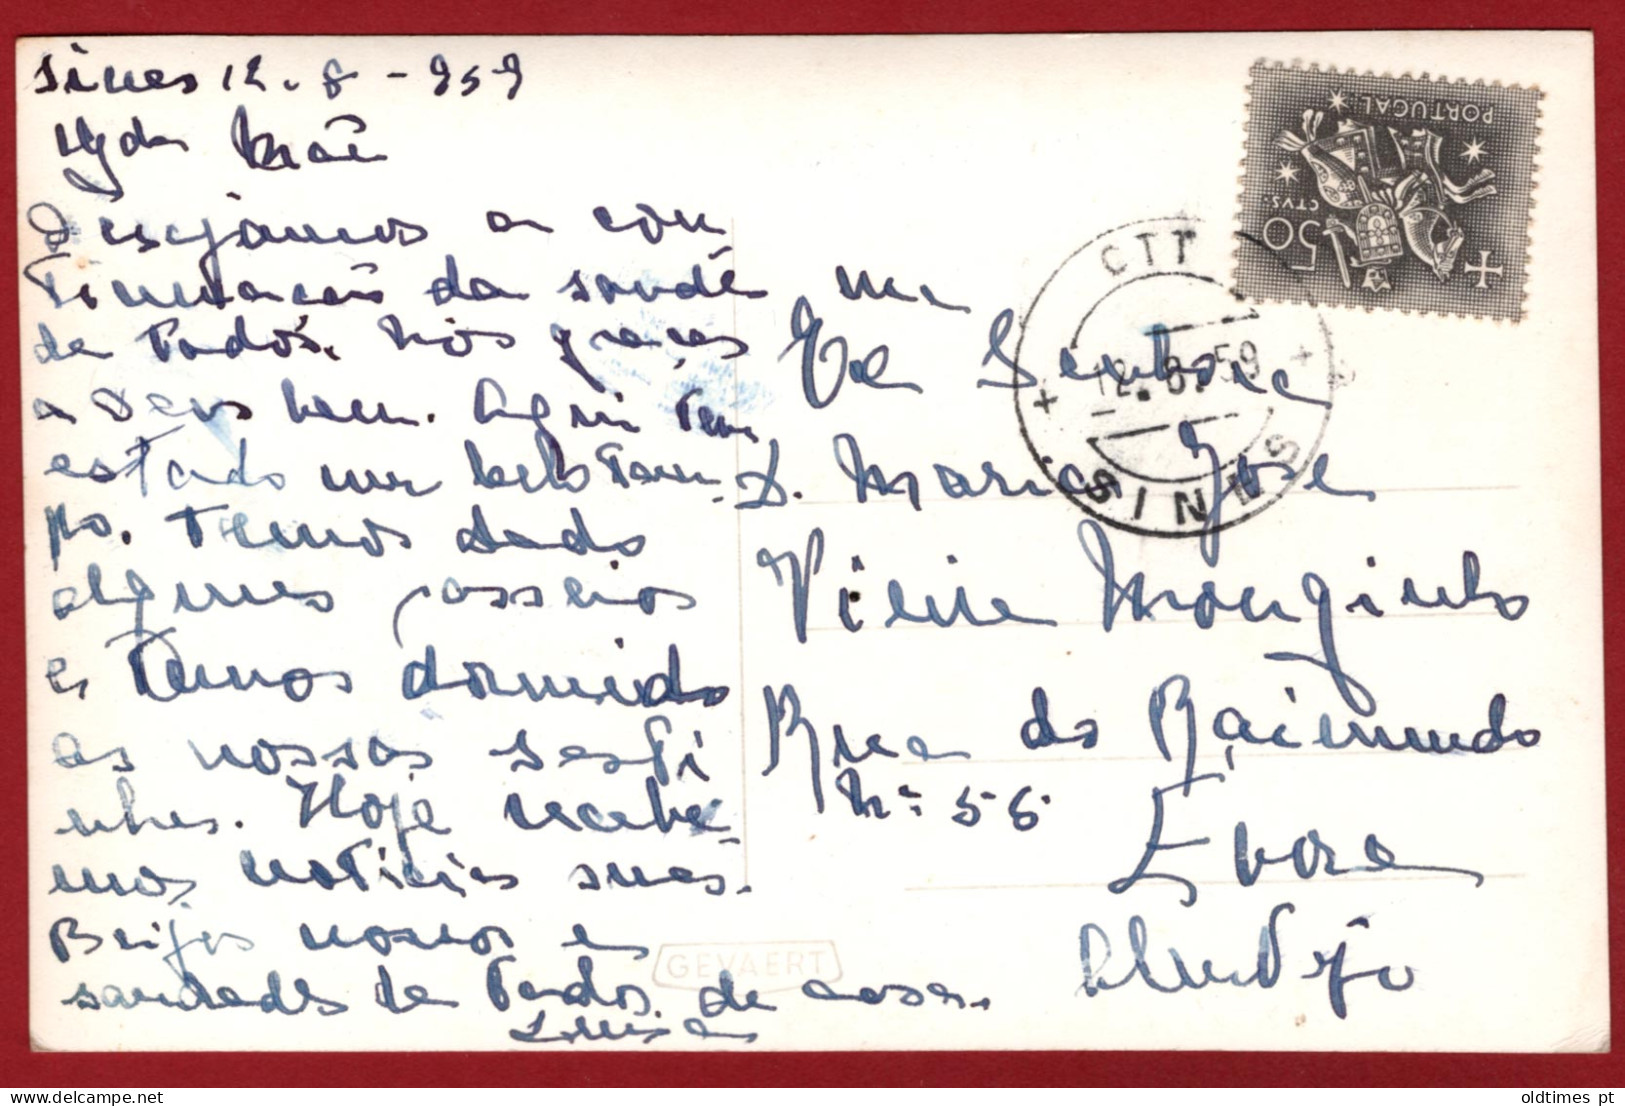 Sines 12-8-959
Mãe
Desejamos a con
tinuação da saude
de todos. Nós graças
a Deus bem. Aqui tem
estado um belo tem-
po. Temos dado
algunes passeios
e temos dormido
as nossas sesti
nhas. Hoje recebe-
mos noticias suas.
Beijos nossos e
saudades de todos de casa.
Luisa
Ma
Exa Senhora
D. Maria José
Vieira Monginho
Rua do Raimundo
Nº 56
Evora
Alentejo
PORTUGAL
50
CTVS.
CTT
12. 8. 59
SINES
GEVAERT
oldtimes pt